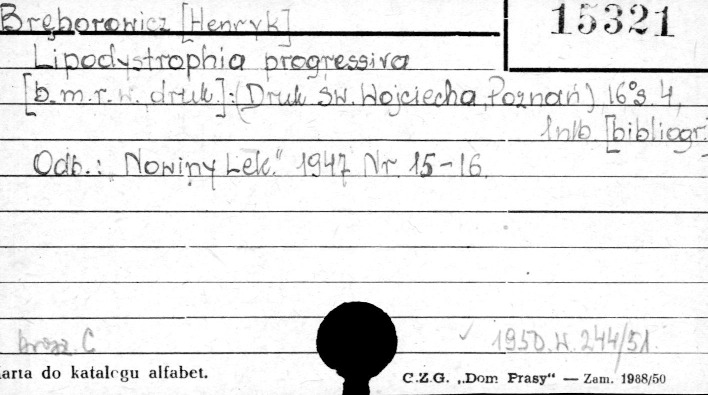 Bręborowicz [Henryk]
15321
Lipodystrophia progressiva
[b.m.r.w. druk.]: (Druk św. Wojciecha, Poznań) 16° s. 4,
1nlb. [bibliogr.]
Odb.: „Nowiny Lek." 1947 Nr 15-16.
brosz. C
1950.W.244/51.
Karta do katalogu alfabet.
C.Z.G. „Dom Prasy" — Zam. 1988/50